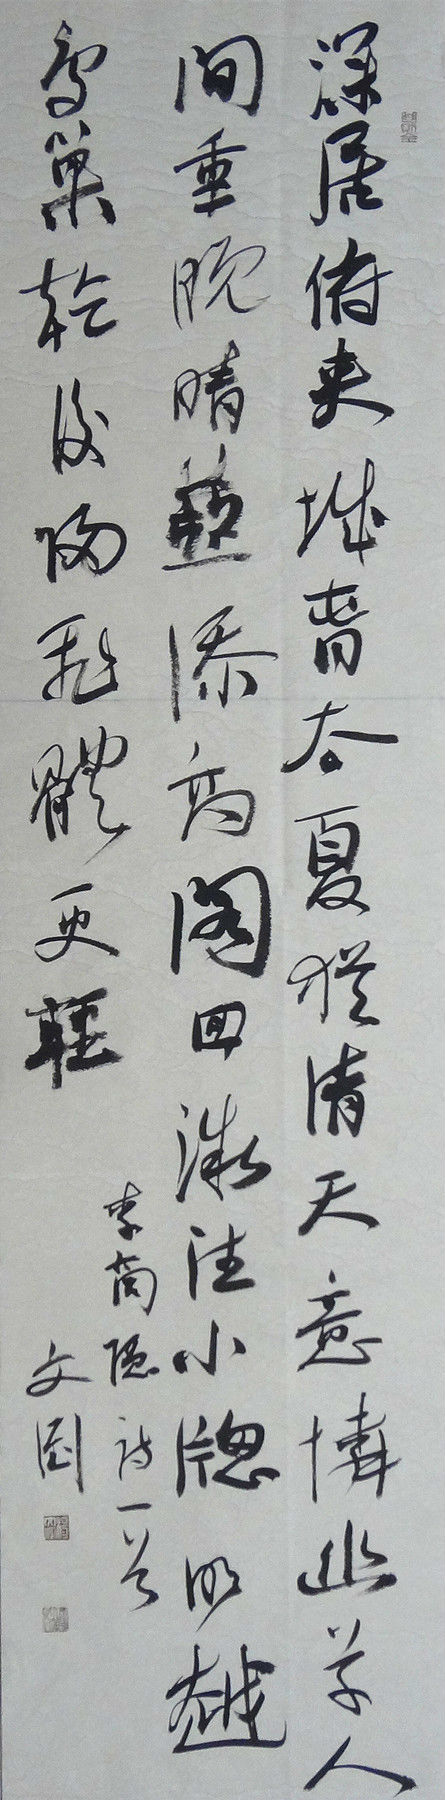 深居俯夾城春去夏猶清天意憐幽草人
間重晚晴並添高閣回微注小牕明越
鳥巢乾後歸飛體更輕
李商隱詩一首
文